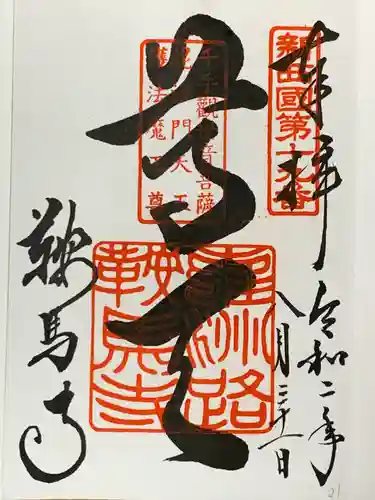 奉拝
新西國第十九番
令和二年
八月二十一日
千手觀世音菩薩
毘沙門天王
護法魔王尊
尊天
雍州路
鞍馬寺
鞍馬寺
21